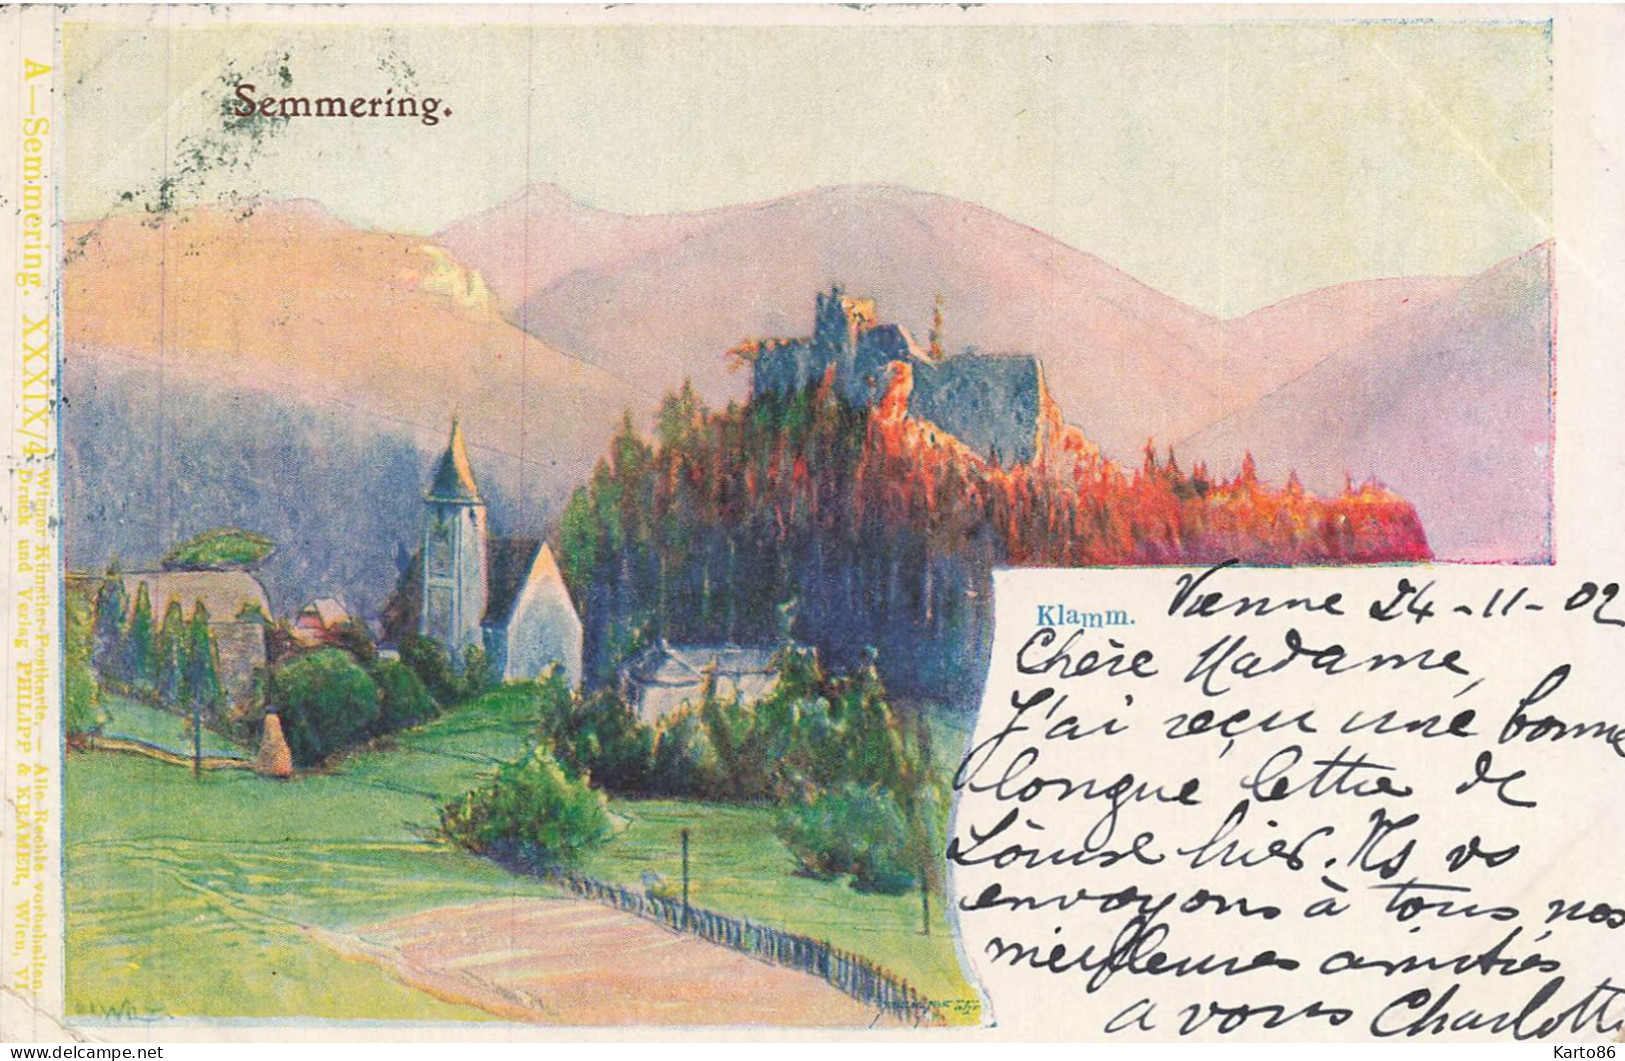 Semmering.
A—Semmering. XXXIX/4. Wiener Künstler-Postkarte. — Alle Rechte vorbehalten.
Druck und Verlag PHILIPP & KRAMER, Wien, VI
Klamm.
Vienne 24-11-02
Chère Madame,
J'ai reçu une bonne
longue lettre de
Louise hier. Ns vs
envoyons à tous nos
meilleures amitiés
a vous Charlotte
www.delcampe.net
Karto86